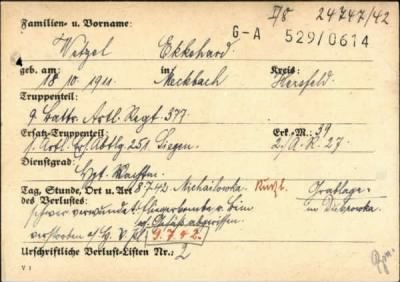 I/8 24747/42
G-A 529/0614
Familien- u. Vorname:
Wetzel Ekkehard.
geb. am: in Kreis:
18.10.1911 Meckbach Hersfeld
Truppenteil:
9. Battr. Artl. Regt. 377
Ersatz-Truppenteil: Erk.-M.: 39
Artl. Ers. Abtlg. 251 Siegen. 2./A.R. 27
Dienstgrad:
Wachtm.
Tag, Stunde, Ort u. Art 8.7.42. Michailowka Grablage:
des Verlustes: in Dubrowka.
schwer verwundet: Fliegerbombe r. Bein
u. Gesäß abgerissen
verstorben a/H.V.Pl. 9.7.42.
Urschriftliche Verlust-Listen Nr.: 2
V 1